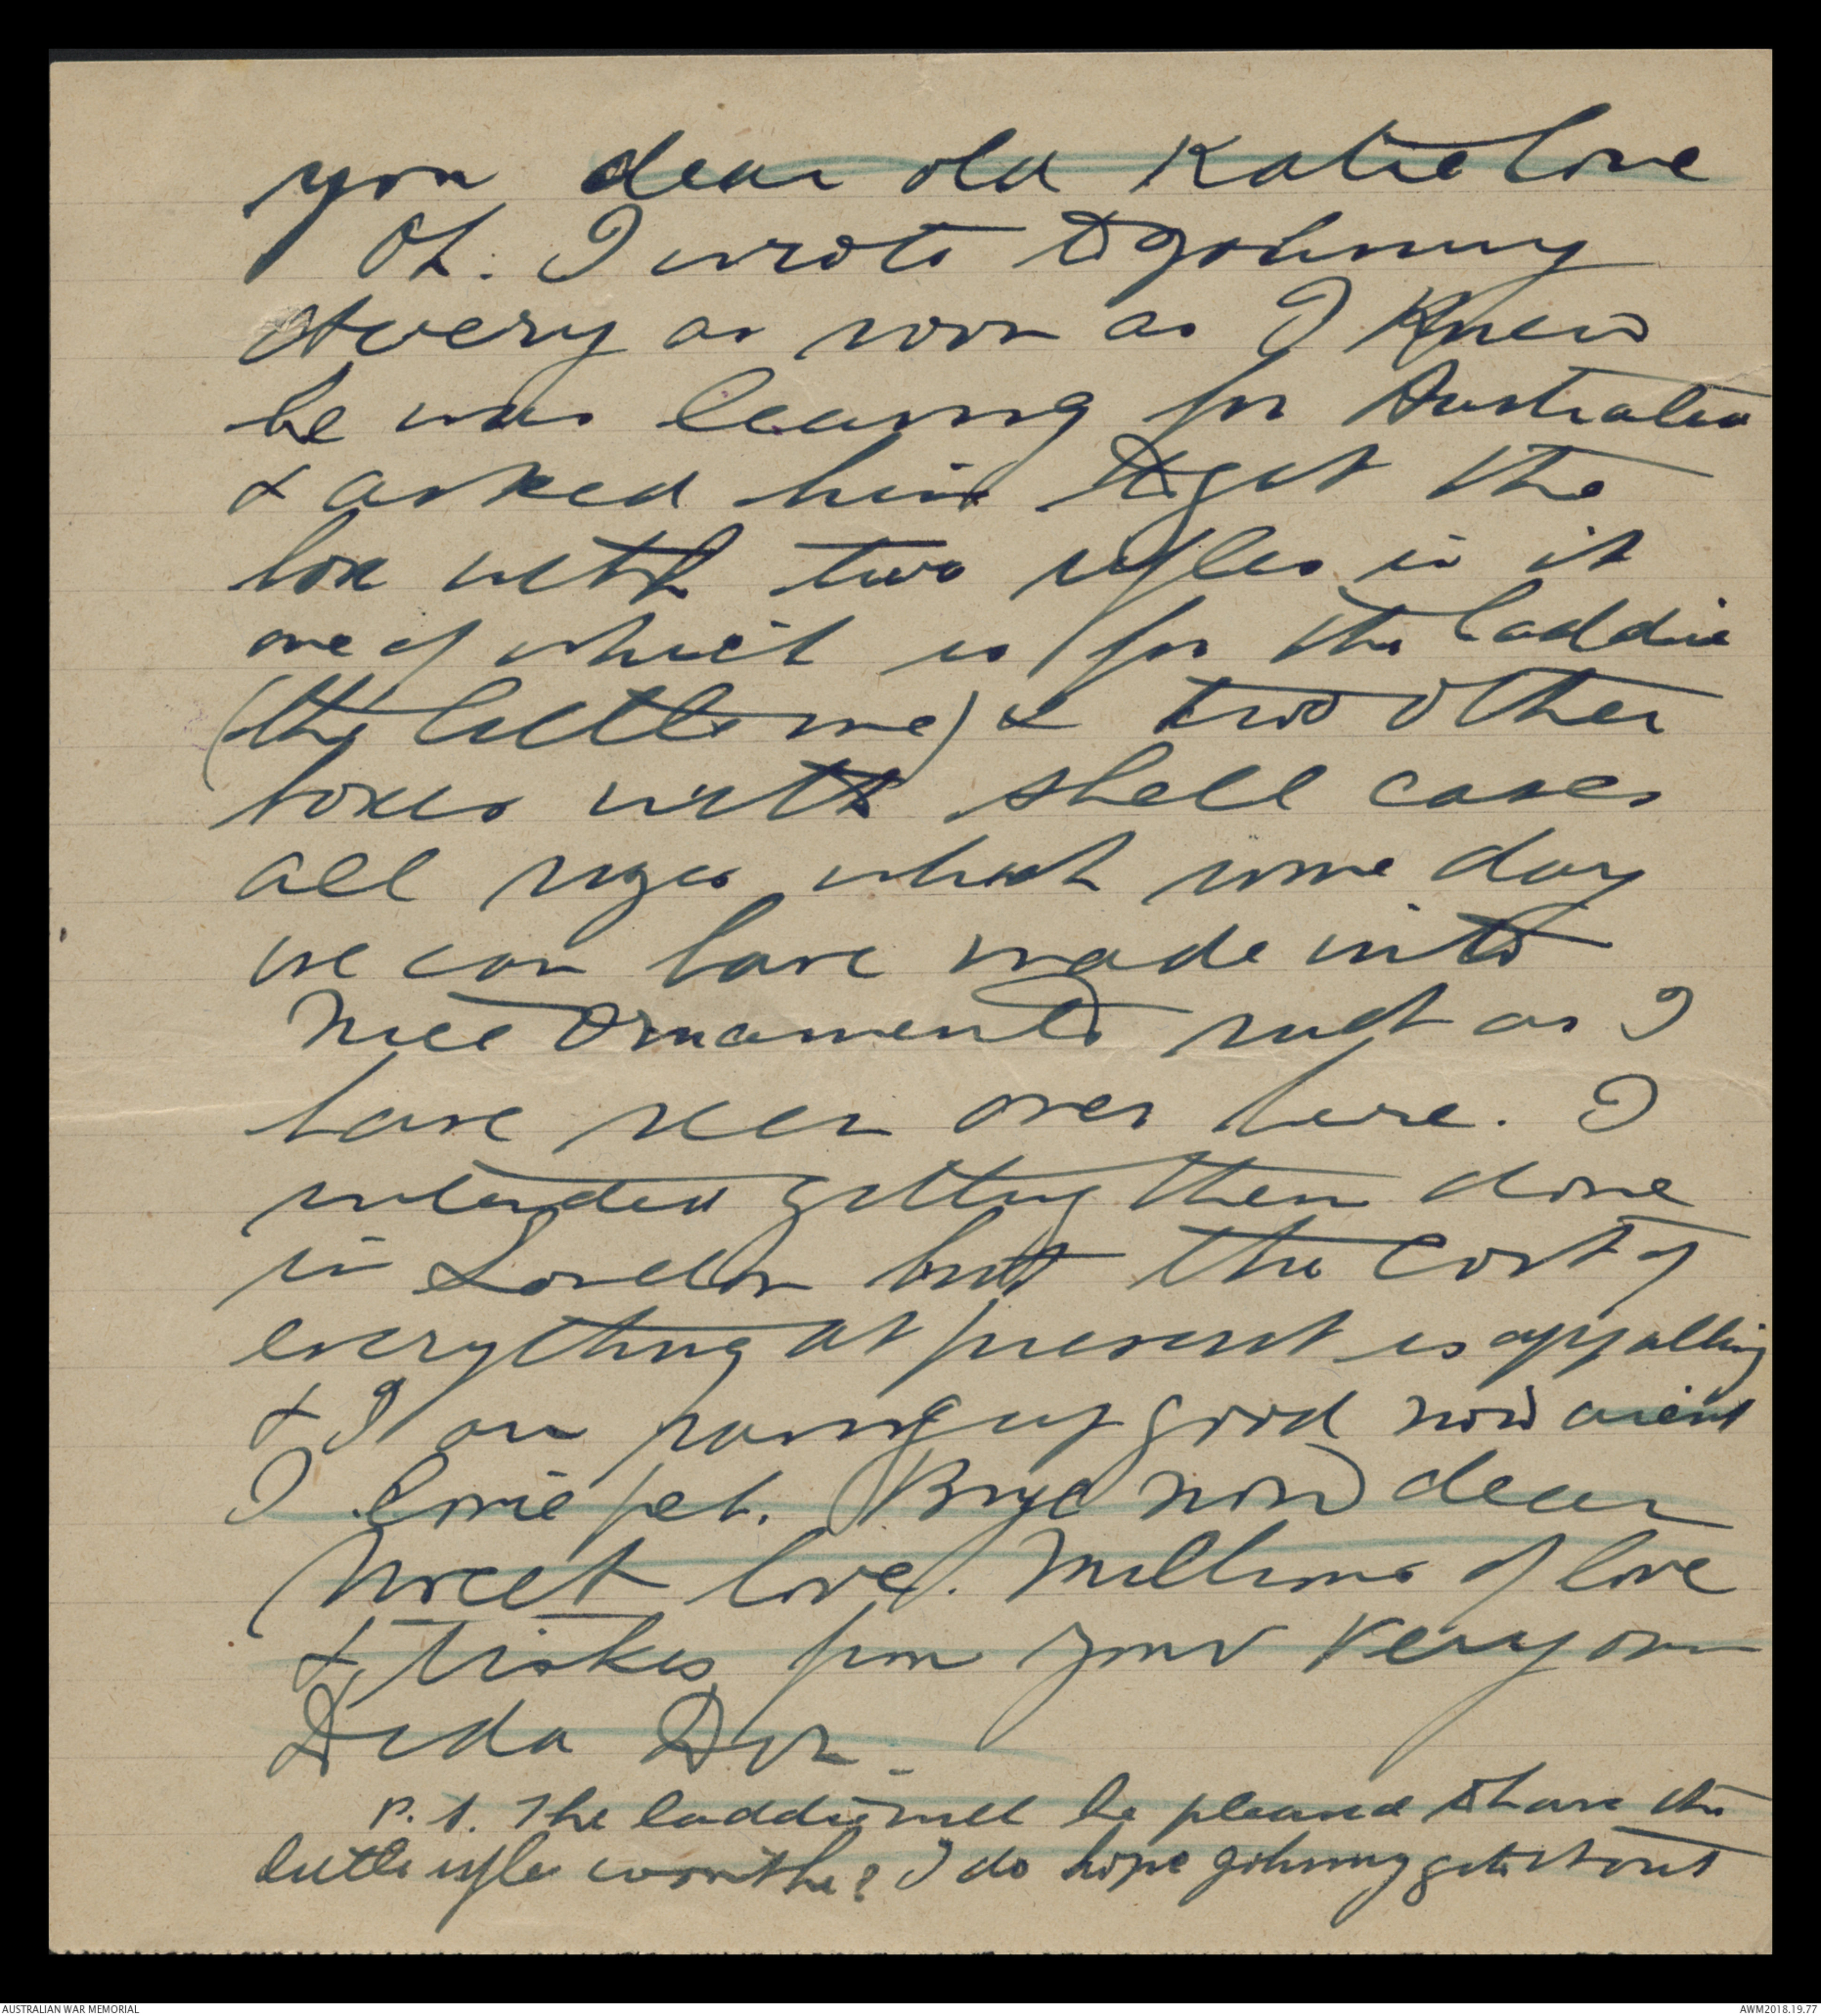 you dear old Katie love
Oh. I wrote to Johnny
Avery as soon as I knew
he was leaving for Australia
& asked him to get the
box with two rifles in it
one of which is for the laddie
(the little one) & two other
boxes with shell cases
all sizes which some day
we can have made into
nice ornaments such as I
have seen over here. I
intended getting them done
in London but the cost of
everything at present is appalling
& I am saving up good now arent
I lovie pet. Bye now dear
sweet love. Millions of love
& kisses from your very own
Dida Don.
P.S. The laddie will be pleased to have the
little rifle won't he? I do hope Johnny gets it out
AUSTRALIAN WAR MEMORIAL
AWM2018.19.77